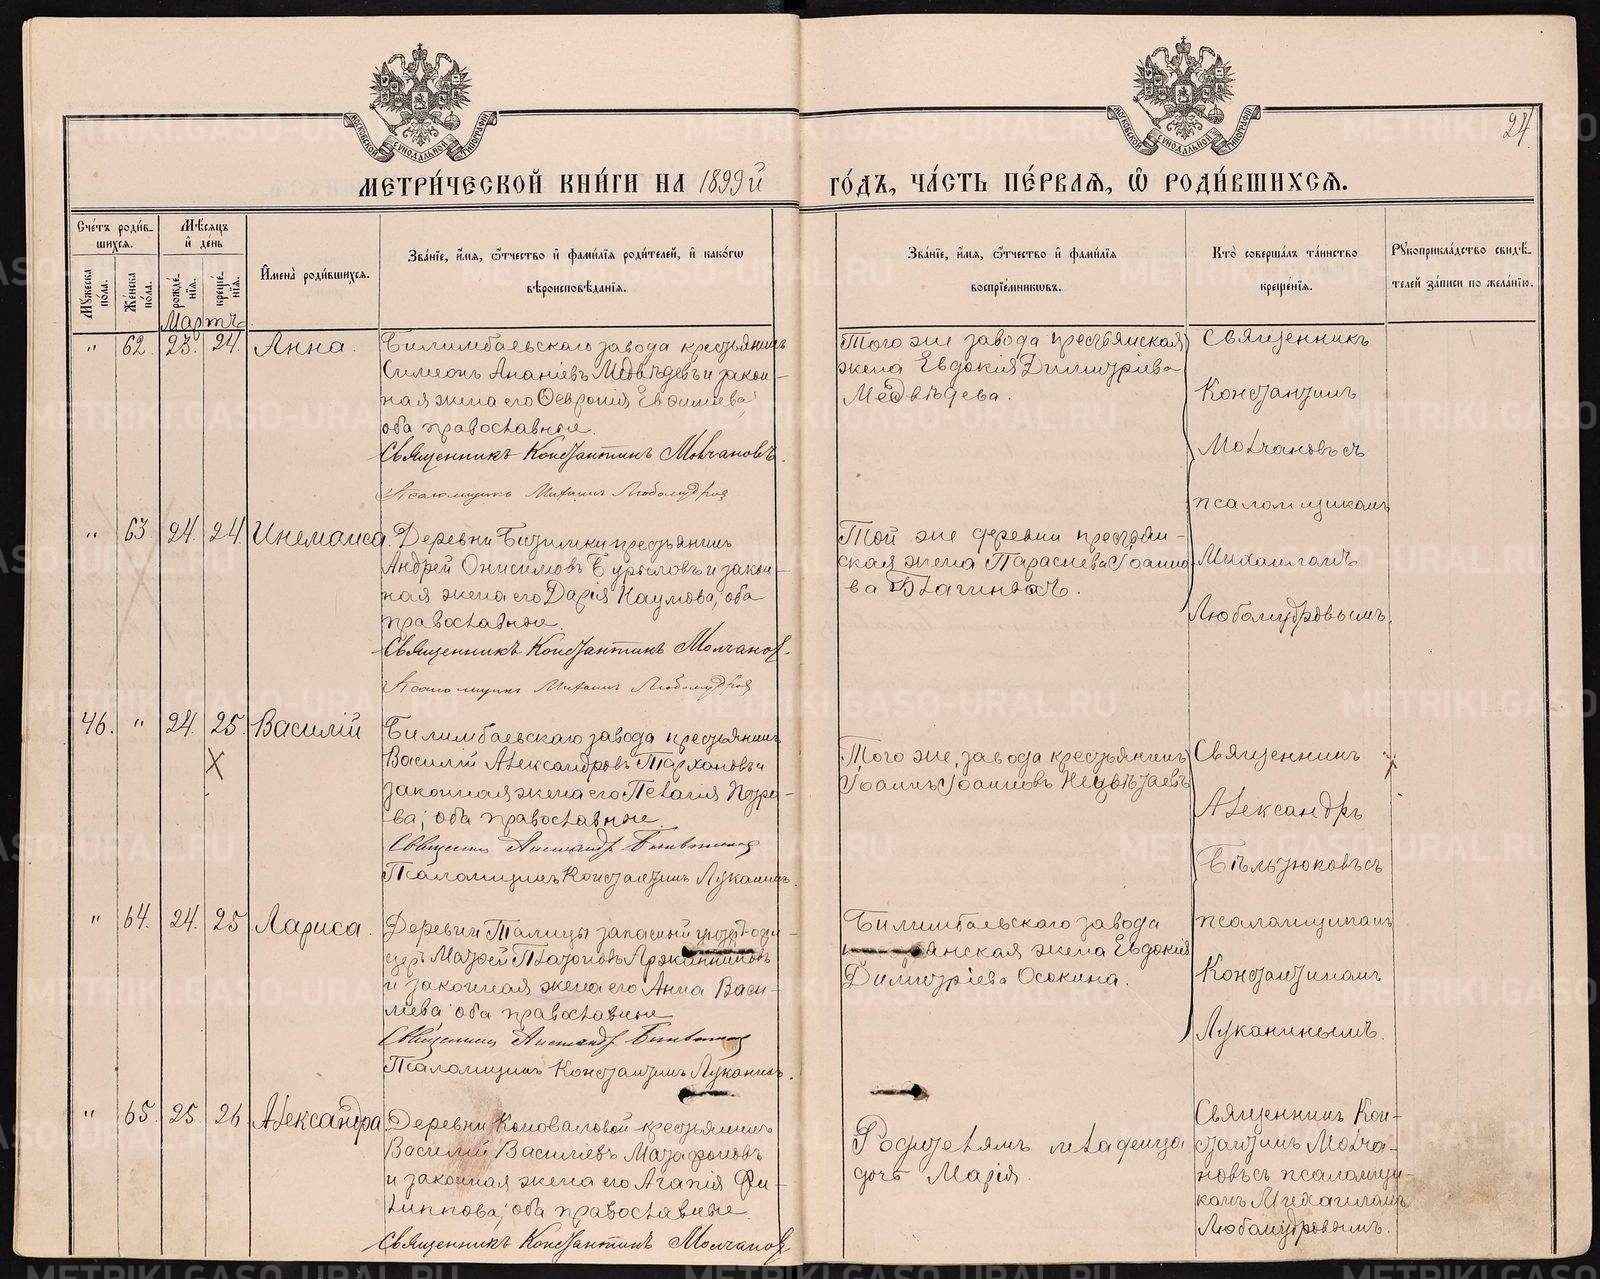 МОСКОВСКОЙ СѴНОДАЛЬНОЙ ТИПОГРАФІИ
МОСКОВСКОЙ СѴНОДАЛЬНОЙ ТИПОГРАФІИ
24.
МЕТРИ́ЧЕСКОЙ КНИ́ГИ НА 1899й ГО́ДЪ, ЧА́СТЬ ПЕ́РВАЯ, Ѡ РОДИ́ВШИХСЯ.
Сче́тъ роди́в-
шихся.
Мꙋ́жеска по́ла.
Же́нска по́ла.
Мѣ́сяцъ
и҆ де́нь
рожде́-
нїя.
креще́-
нїя.
И҆мена̀ роди́вшихся.
Зва́нїе, и҆́мя, ѻ҆́тчество и҆ фами́лїя роди́телей, и҆ како́гѡ
вѣроисповѣ́данїя.
Зва́нїе, и҆́мя, ѻ҆́тчество и҆ фами́лїя
воспрїе́мникѡвъ.
Кто̀ соверша́лъ та́инство
креще́нїя.
Рꙋкоприкла́дство свидѣ́-
телей за́писи по жела́нїю.
Мартъ
" 62. 23. 24. Анна.
Билимбаевскаго завода крестьянинъ
Симеонъ Ананіевъ Медвѣдевъ и закон-
ная жена его Феврония
оба православные.
Священникъ Константинъ Молчановъ.
Псаломщикъ Михаилъ Любомудровъ
Того же завода крестьянская
жена Евдокія Димитріева
Медвѣдева.
Священникъ
Константинъ
Молчановъ съ
псаломщикомъ
Михаиломъ
Любомудровымъ.
" 63. 24. 24.
Деревни крестьянинъ
Андрей Онисимовъ Бурыловъ и закон-
ная жена его Дарія Наумова; оба
православные.
Священникъ Константинъ Молчановъ
Псаломщикъ Михаилъ Любомудровъ
Той же деревни крестьян-
ская жена Параскева Іоанно-
ва
46. " 24. 25. Василій
Билимбаевскаго завода крестьянинъ
Василій Александровъ Тархановъ и
законная жена его Пелагія Петро-
ва; оба православные.
Священникъ Александръ
Псаломщикъ Константинъ Луканинъ.
Того же завода крестьянинъ
Іоаннъ Іоанновъ
Священникъ
Александръ
Бѣльтюковъ съ
псаломщикомъ
Константиномъ
Луканинымъ.
" 64. 24. 25 Лариса.
Деревни Талицы запасный унтеръ-офи-
церъ Матѳей Платоновъ
и законная жена его Анна Васи-
лиева оба православные
Священникъ Александръ
Псаломщикъ Константинъ Луканинъ.
Билимбаевскаго завода
крестьянская жена Евдокія
Димитріева Осокина.
" 65. 25. 26 Александра.
Деревни Коноваловой крестьянинъ
Василій Василіевъ
и законная жена его Агапія Фи-
липпова; оба православные.
Священникъ Константинъ Молчановъ
Родителямъ младенца
дочь Марія.
Священникъ Кон-
стантинъ Молча-
новъ съ псаломщи-
комъ Михаиломъ
Любомудровымъ.
METRIKI.GASO-URAL.RU